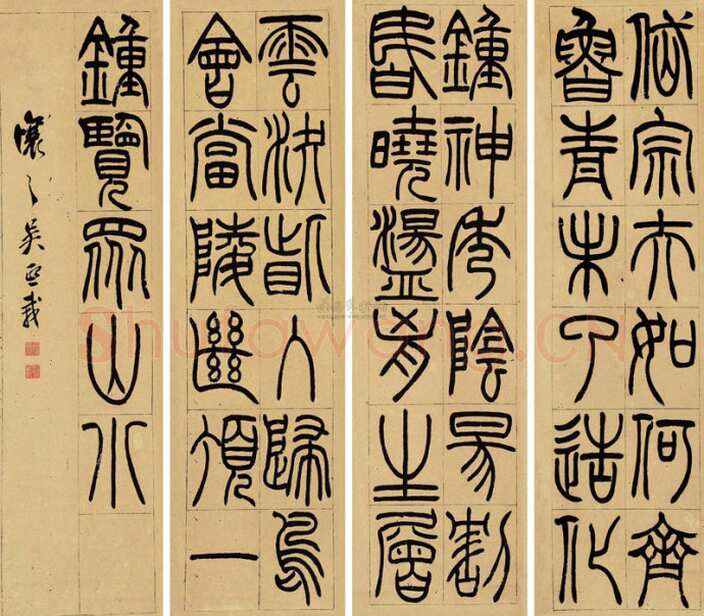 岱宗夫如何齊
魯青未了造化
鍾神秀陰昜割
昏曉盪胷生層
雲決眥入歸鳥
會當陵絕頂一
鍾覽眾山小
讓之吳熙載
Shufawang.CN